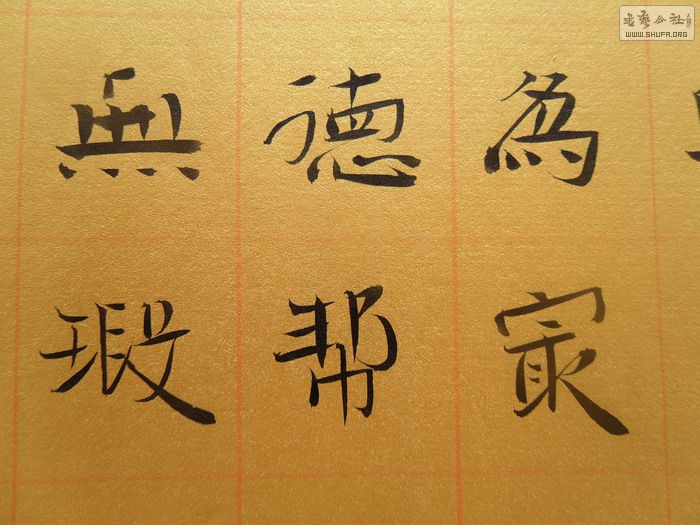 為㝡
德帮
無瑕
書藝公社
WWW.SHUFA.ORG